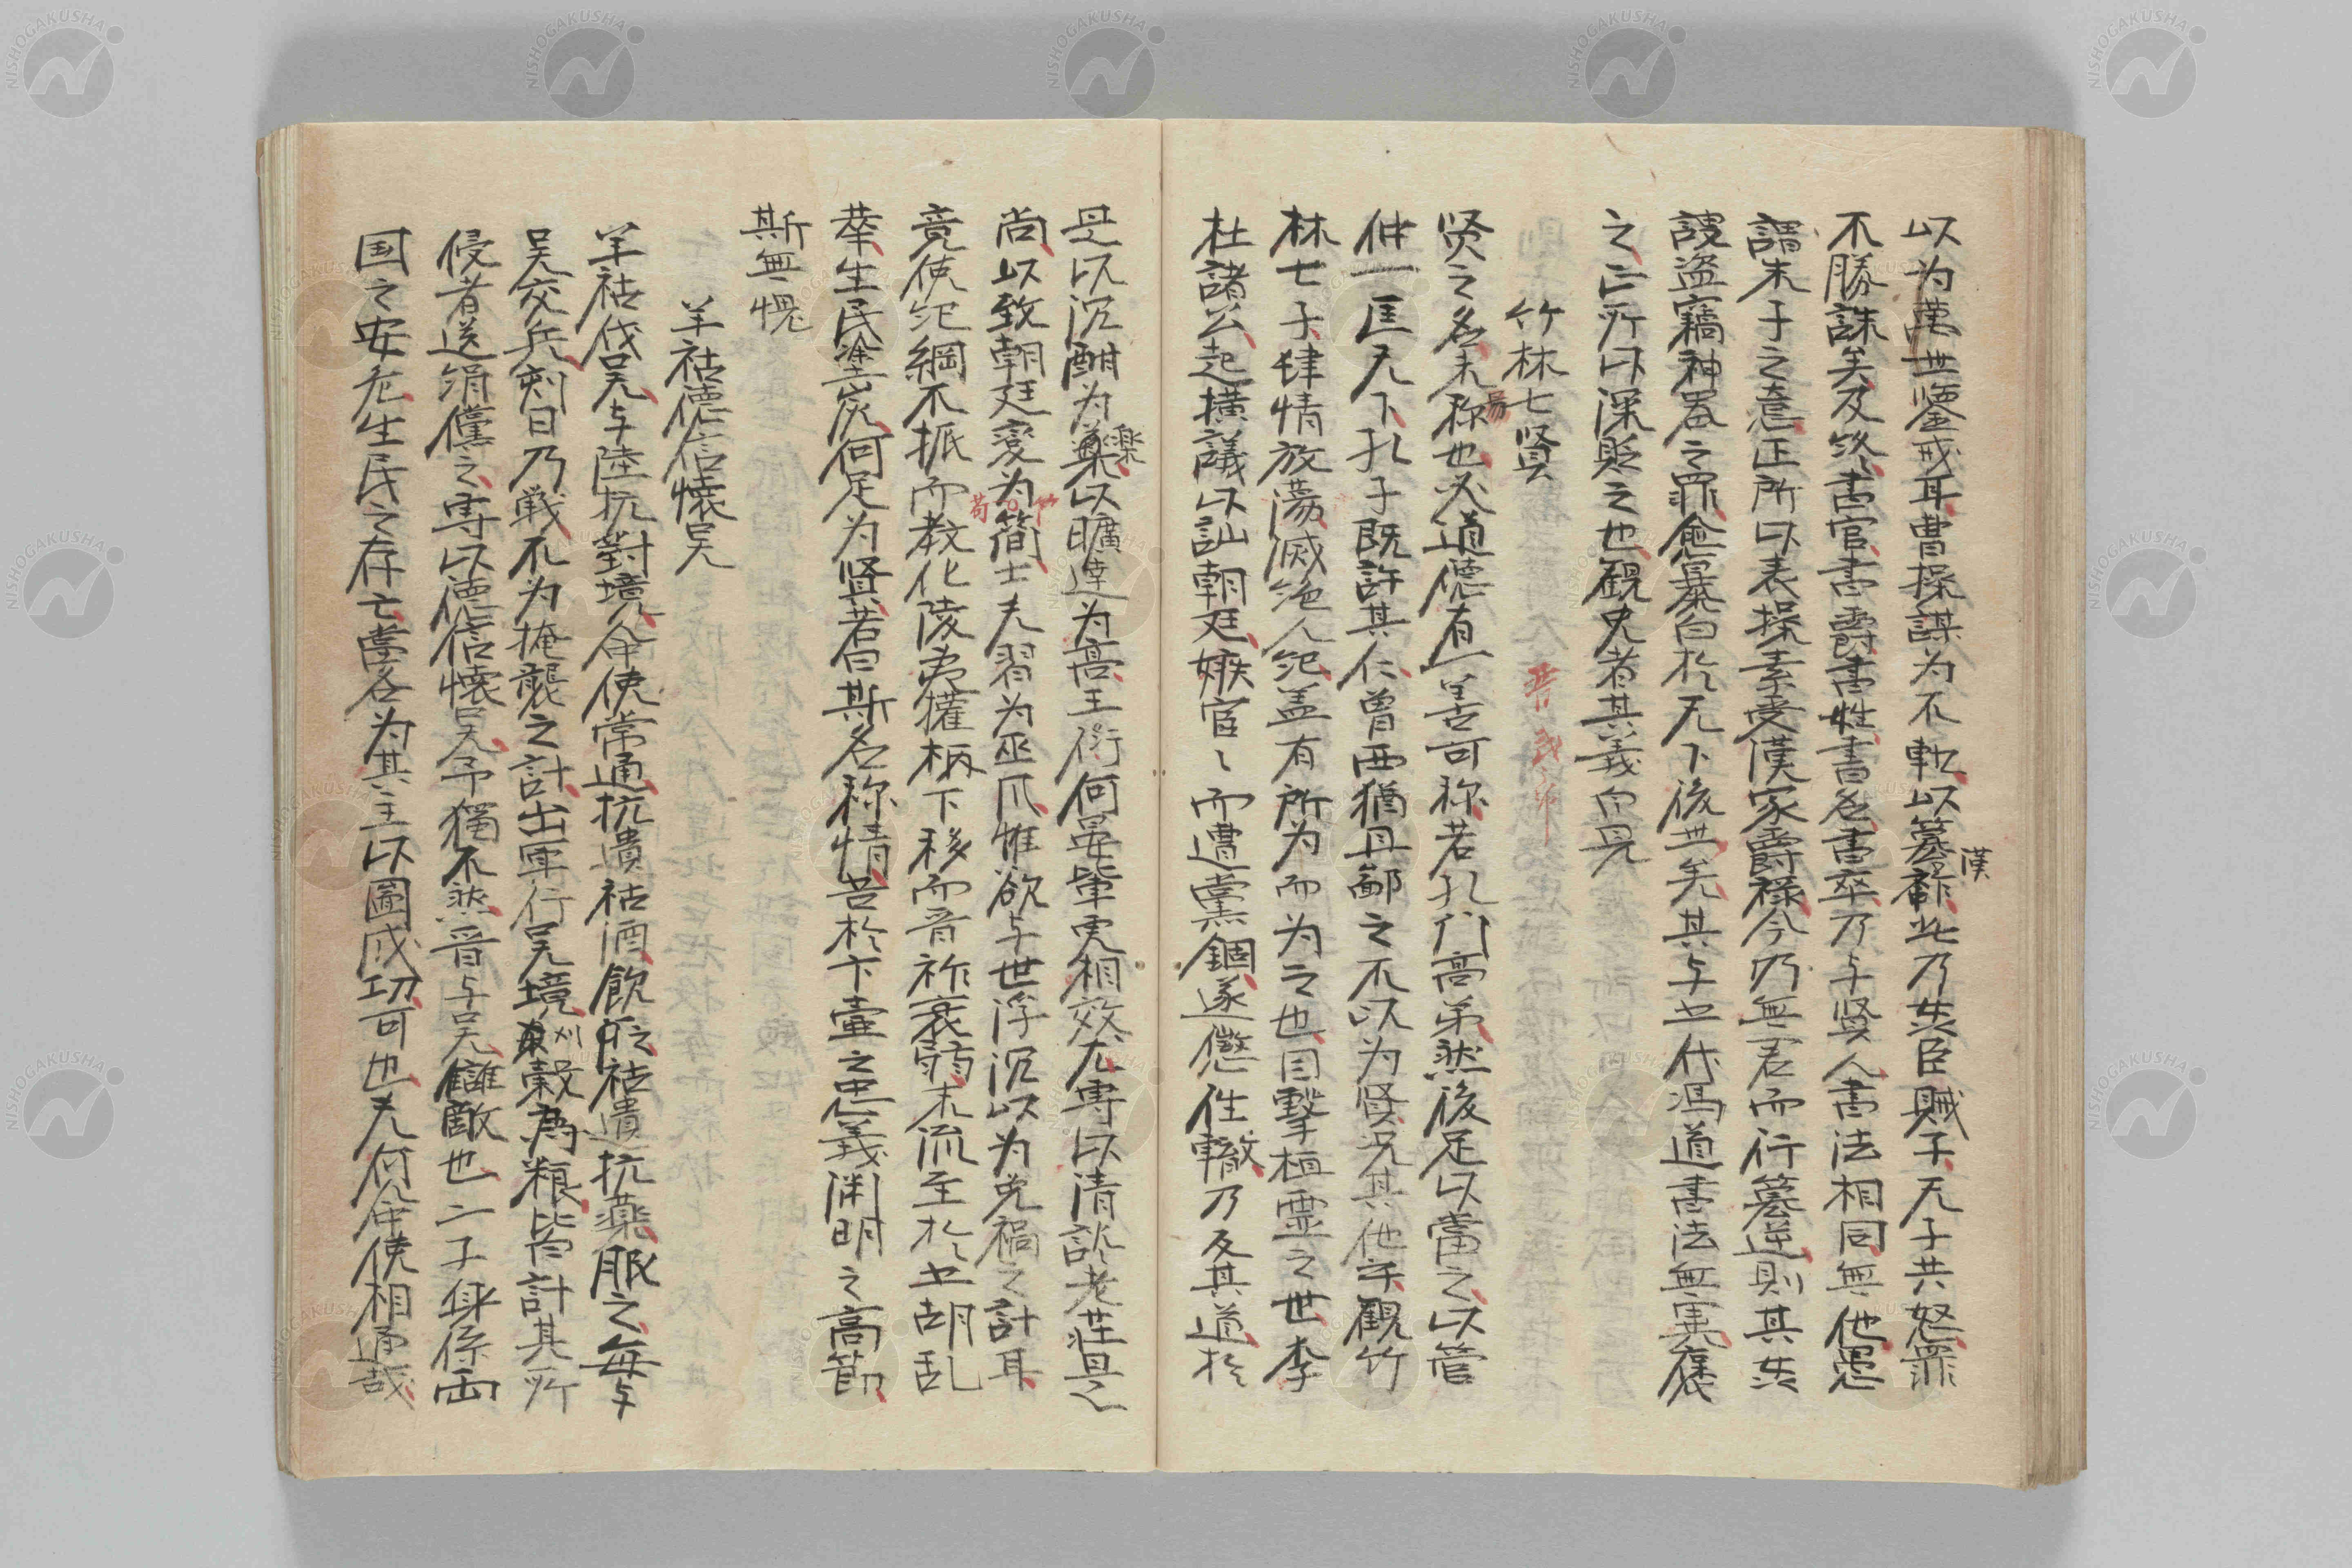 以为萬世鑒戒耳曹操謀为不軌以篡漢祚此乃姦臣賊子天子共怒罪
不勝誅矣及終書官書爵書姓書名書卒乃与賢人書法相同無他愚
謂朱子之意正所以表操素受漢家爵禄今乃無君而行篡逆則其姦
謀盗竊神器之罪愈暴白於天下後世矣其与五代馮道書法無寓褒
之亡所以深貶之也観史者其義自見
竹林七贤
贤之名未易称也必道德有一善可称若孔门高弟然後足以當之以管
仲一匡天下孔子既許其仁曾西猶卑鄙之不以为賢况其他乎觀竹
林七子肆情放蕩滅絶人紀盖有所为而为之也目擊桓霊之世李
杜諸公起横議以訕朝廷嫉宦々而遭黨錮遂懲往轍乃反其道於
是以沉酣为樂以曠達为高王衍何晏輩更相效尤専以清談老荘是
尚以致朝廷変为簡士夫習为巫爪惟欲与世浮沉以为免禍之計耳
竟使紀綱不振而教化陵夷權柄下移而晋祚衰弱末流至於五胡乱
華生民塗炭何足为賢若曰斯名称情苦於卞壷之忠義渊明之高節
斯無愧
羊祜德信懐吴
羊祜伐吴与陸抗對境命使常通抗遺祜酒飲之祜遺抗藥服之每与
吴交兵刻日乃戦不为掩襲之計出軍行吴境刈穀為粮皆計其所
侵者送絹償之専以德信懐吴予獨不然晋与吴讎敵也二子身係両
国之安危生民之存亡當各为其主以圖成功可也夫何命使相通哉